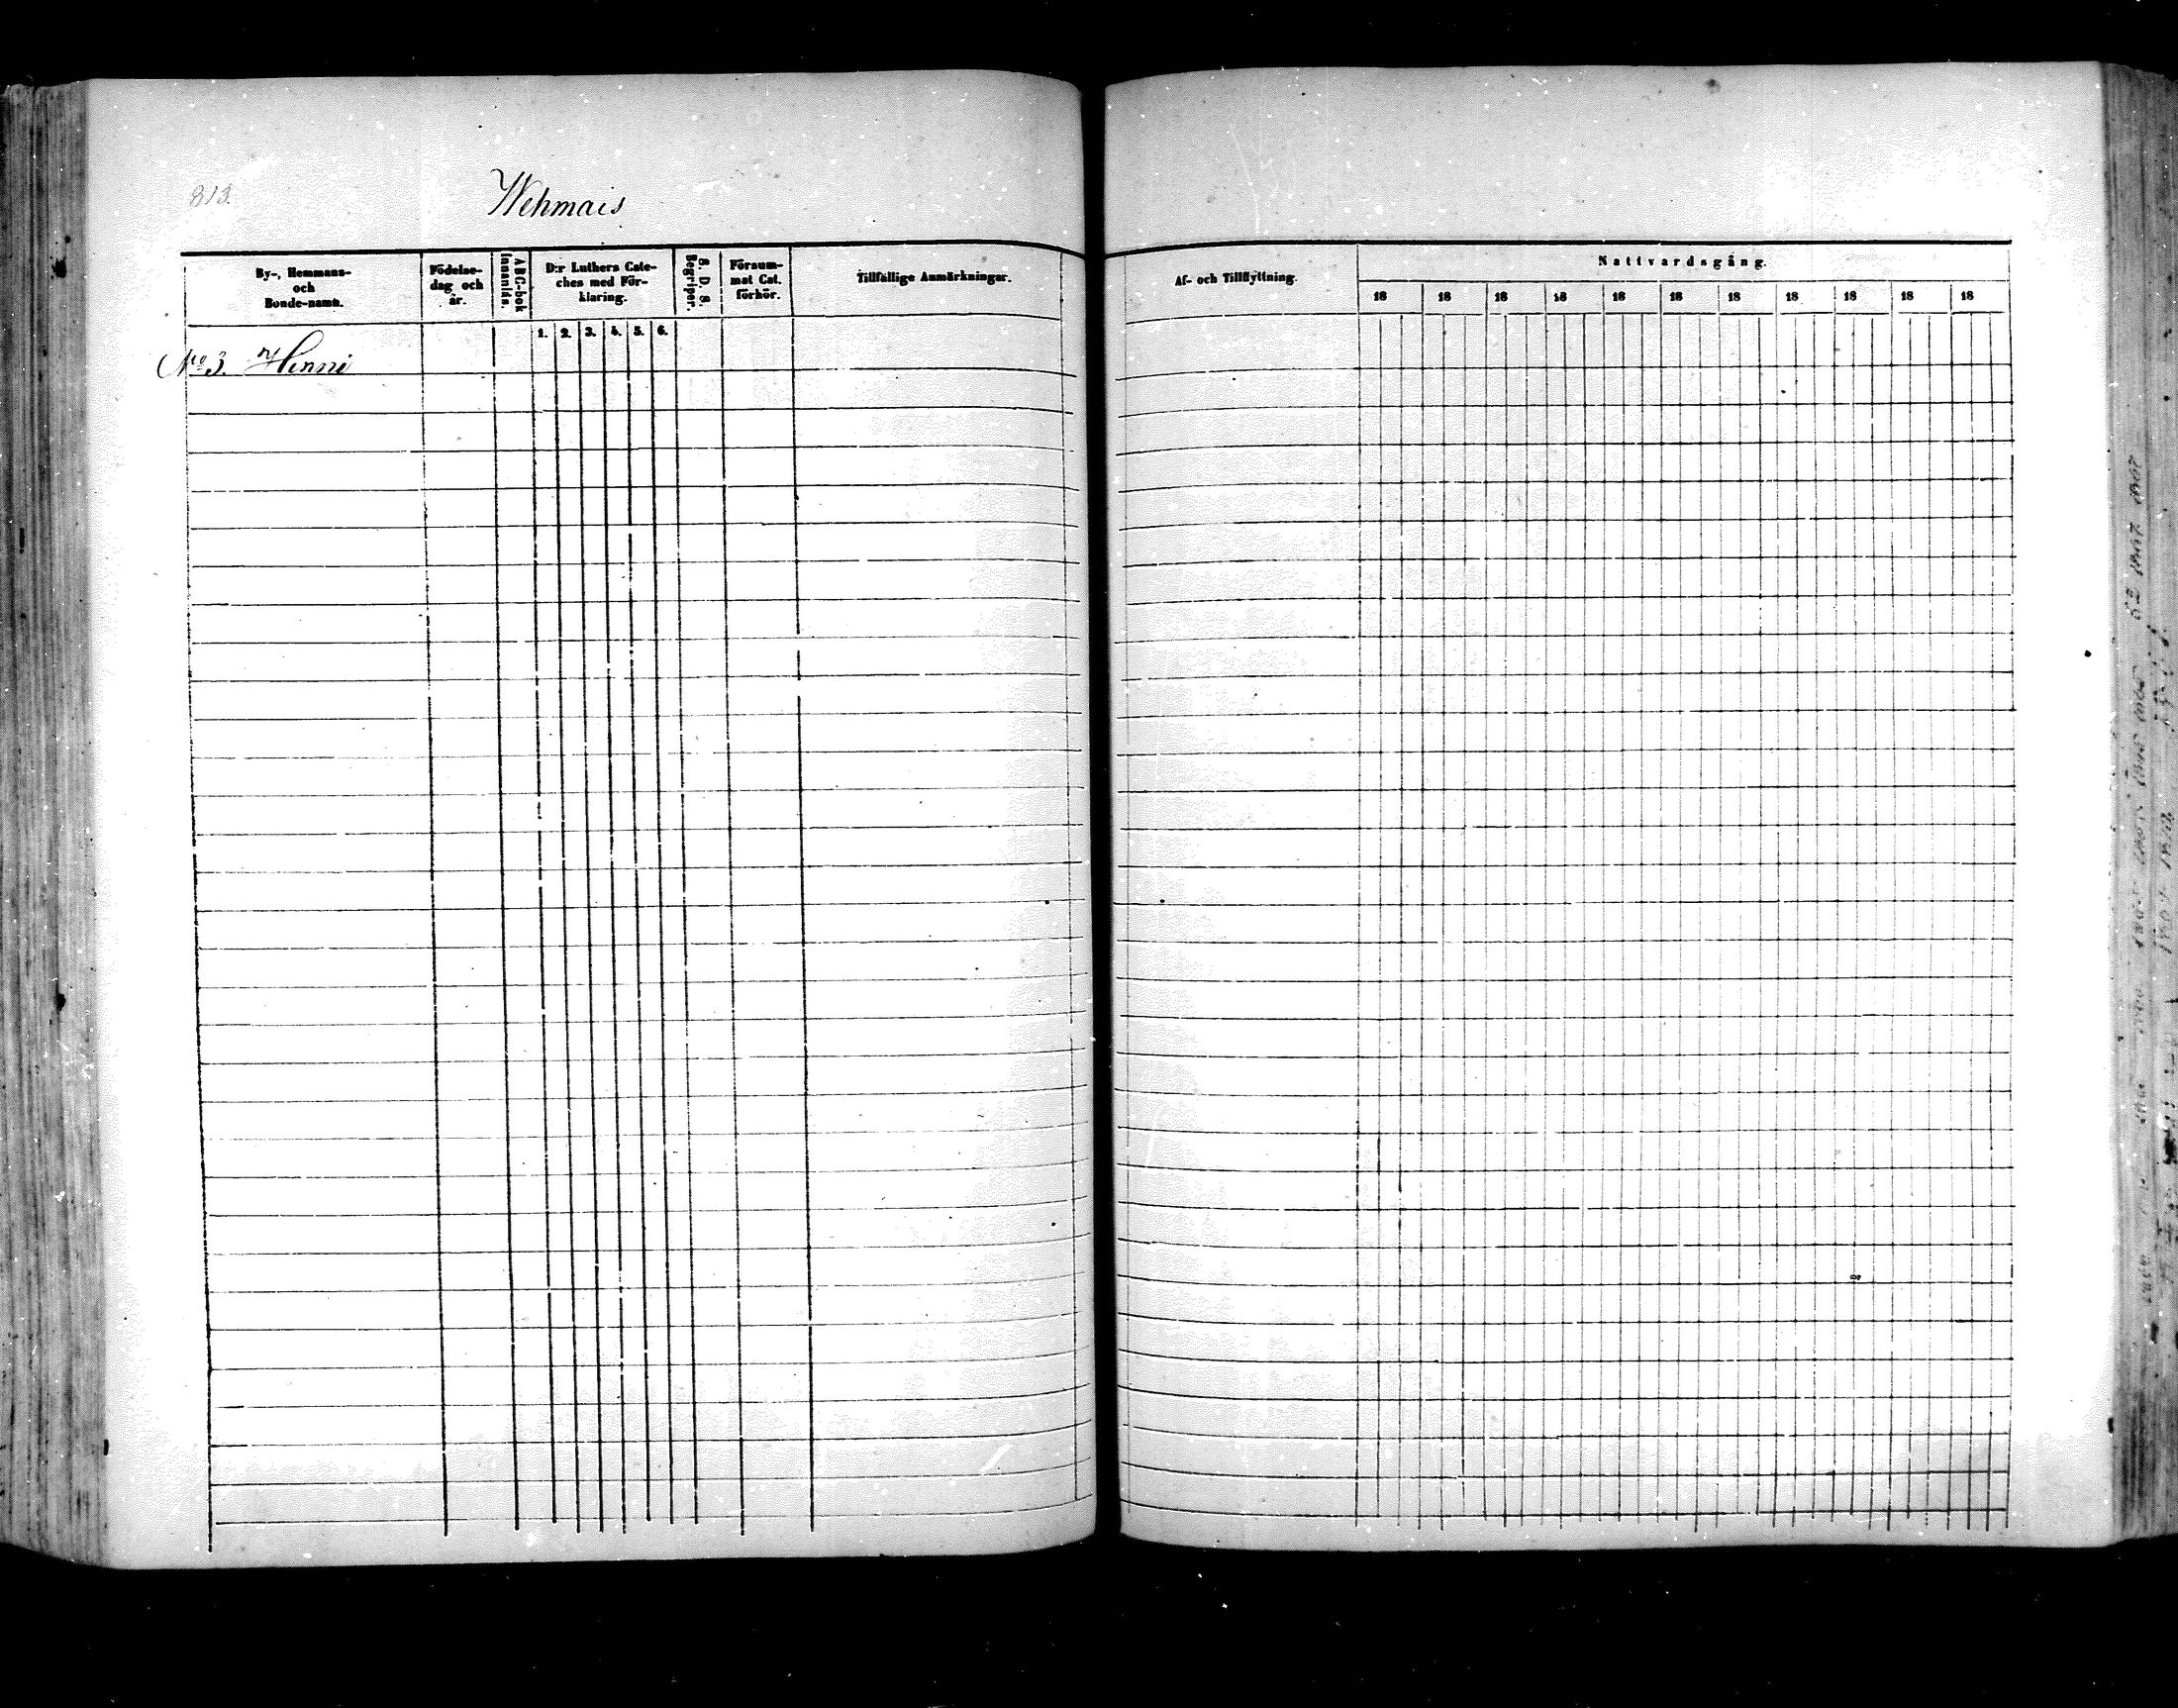 813.
Wehmais
By-, Hemmans-
och
Bonde-namn.
Födelse-
dag och
år.
A B C-bok
Innantill.
D:r Luthers Cate-
ches med För-
klaring.
S. D. S.
Begriper.
Försum-
mat Cat.
förhör.
Tillfällige Anmärkningar.
1. 2. 3. 4. 5. 6.
No 3. Hinni
Af- och Tillflyttning.
Nattvardsgång.
18 18 18 18 18 18 18 18 18 18 18